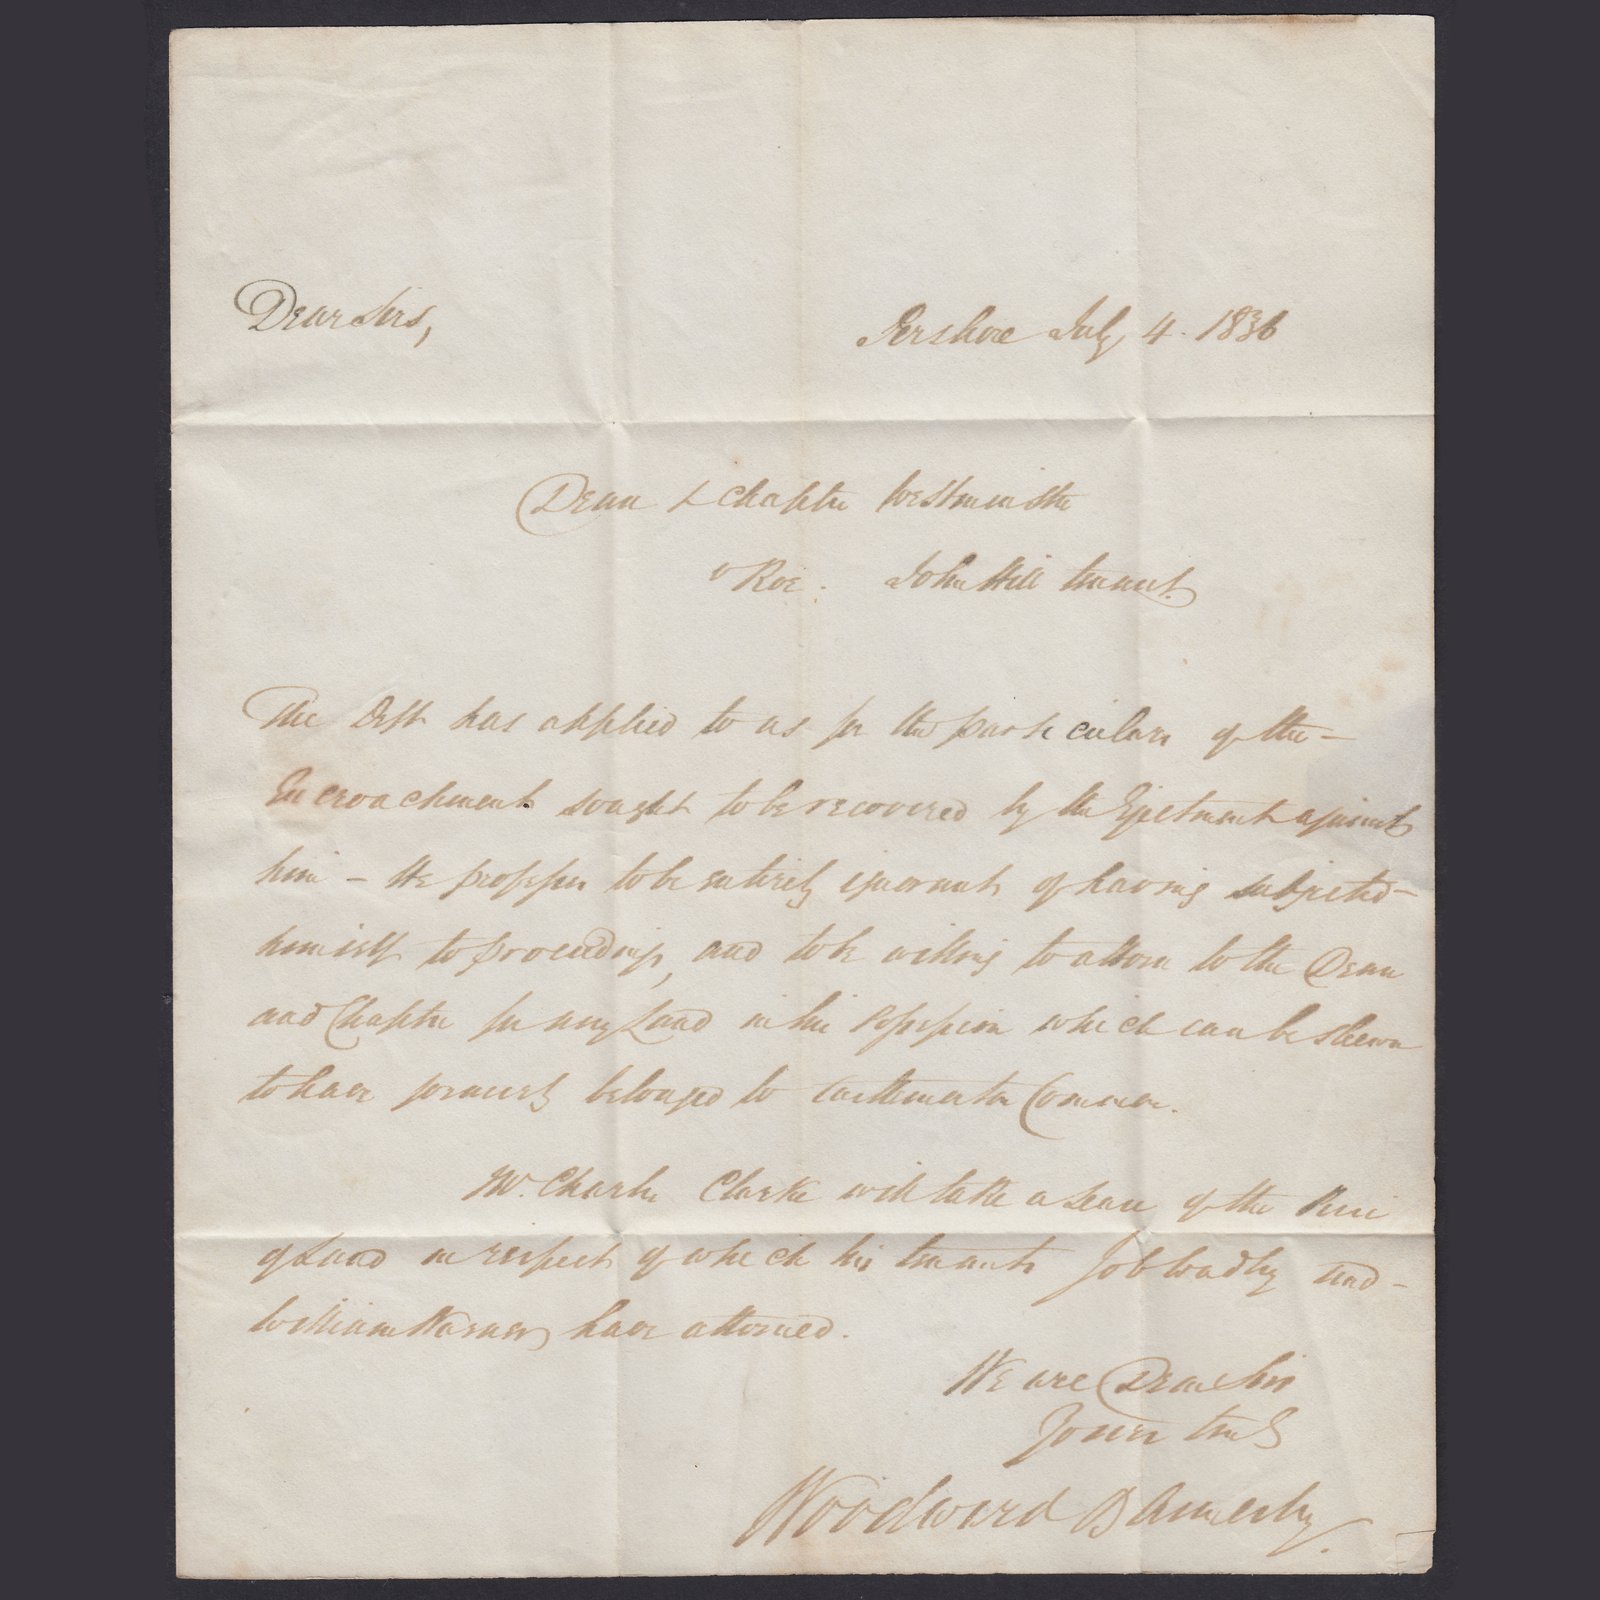 Dear Sirs,
Pershore July 4. 1836
Dean & Chapter Westminster
v Roe. John Hill tenant.
The Deft has applied to us for the particulars of the -
Encroachment sought to be recovered by the Ejectment against
him - He professes to be entirely ignorant of having subjected -
himself to proceedings, and to be willing to attorn to the Dean
and Chapter for any Land in his possession which can be shewn
to have formerly belonged to Common.
Mr. Charles Clarke will take a Lease of the
of Land in respect of which his tenants Job and -
William have attorned.
We are Dear Sirs
Yours truly
Woodward